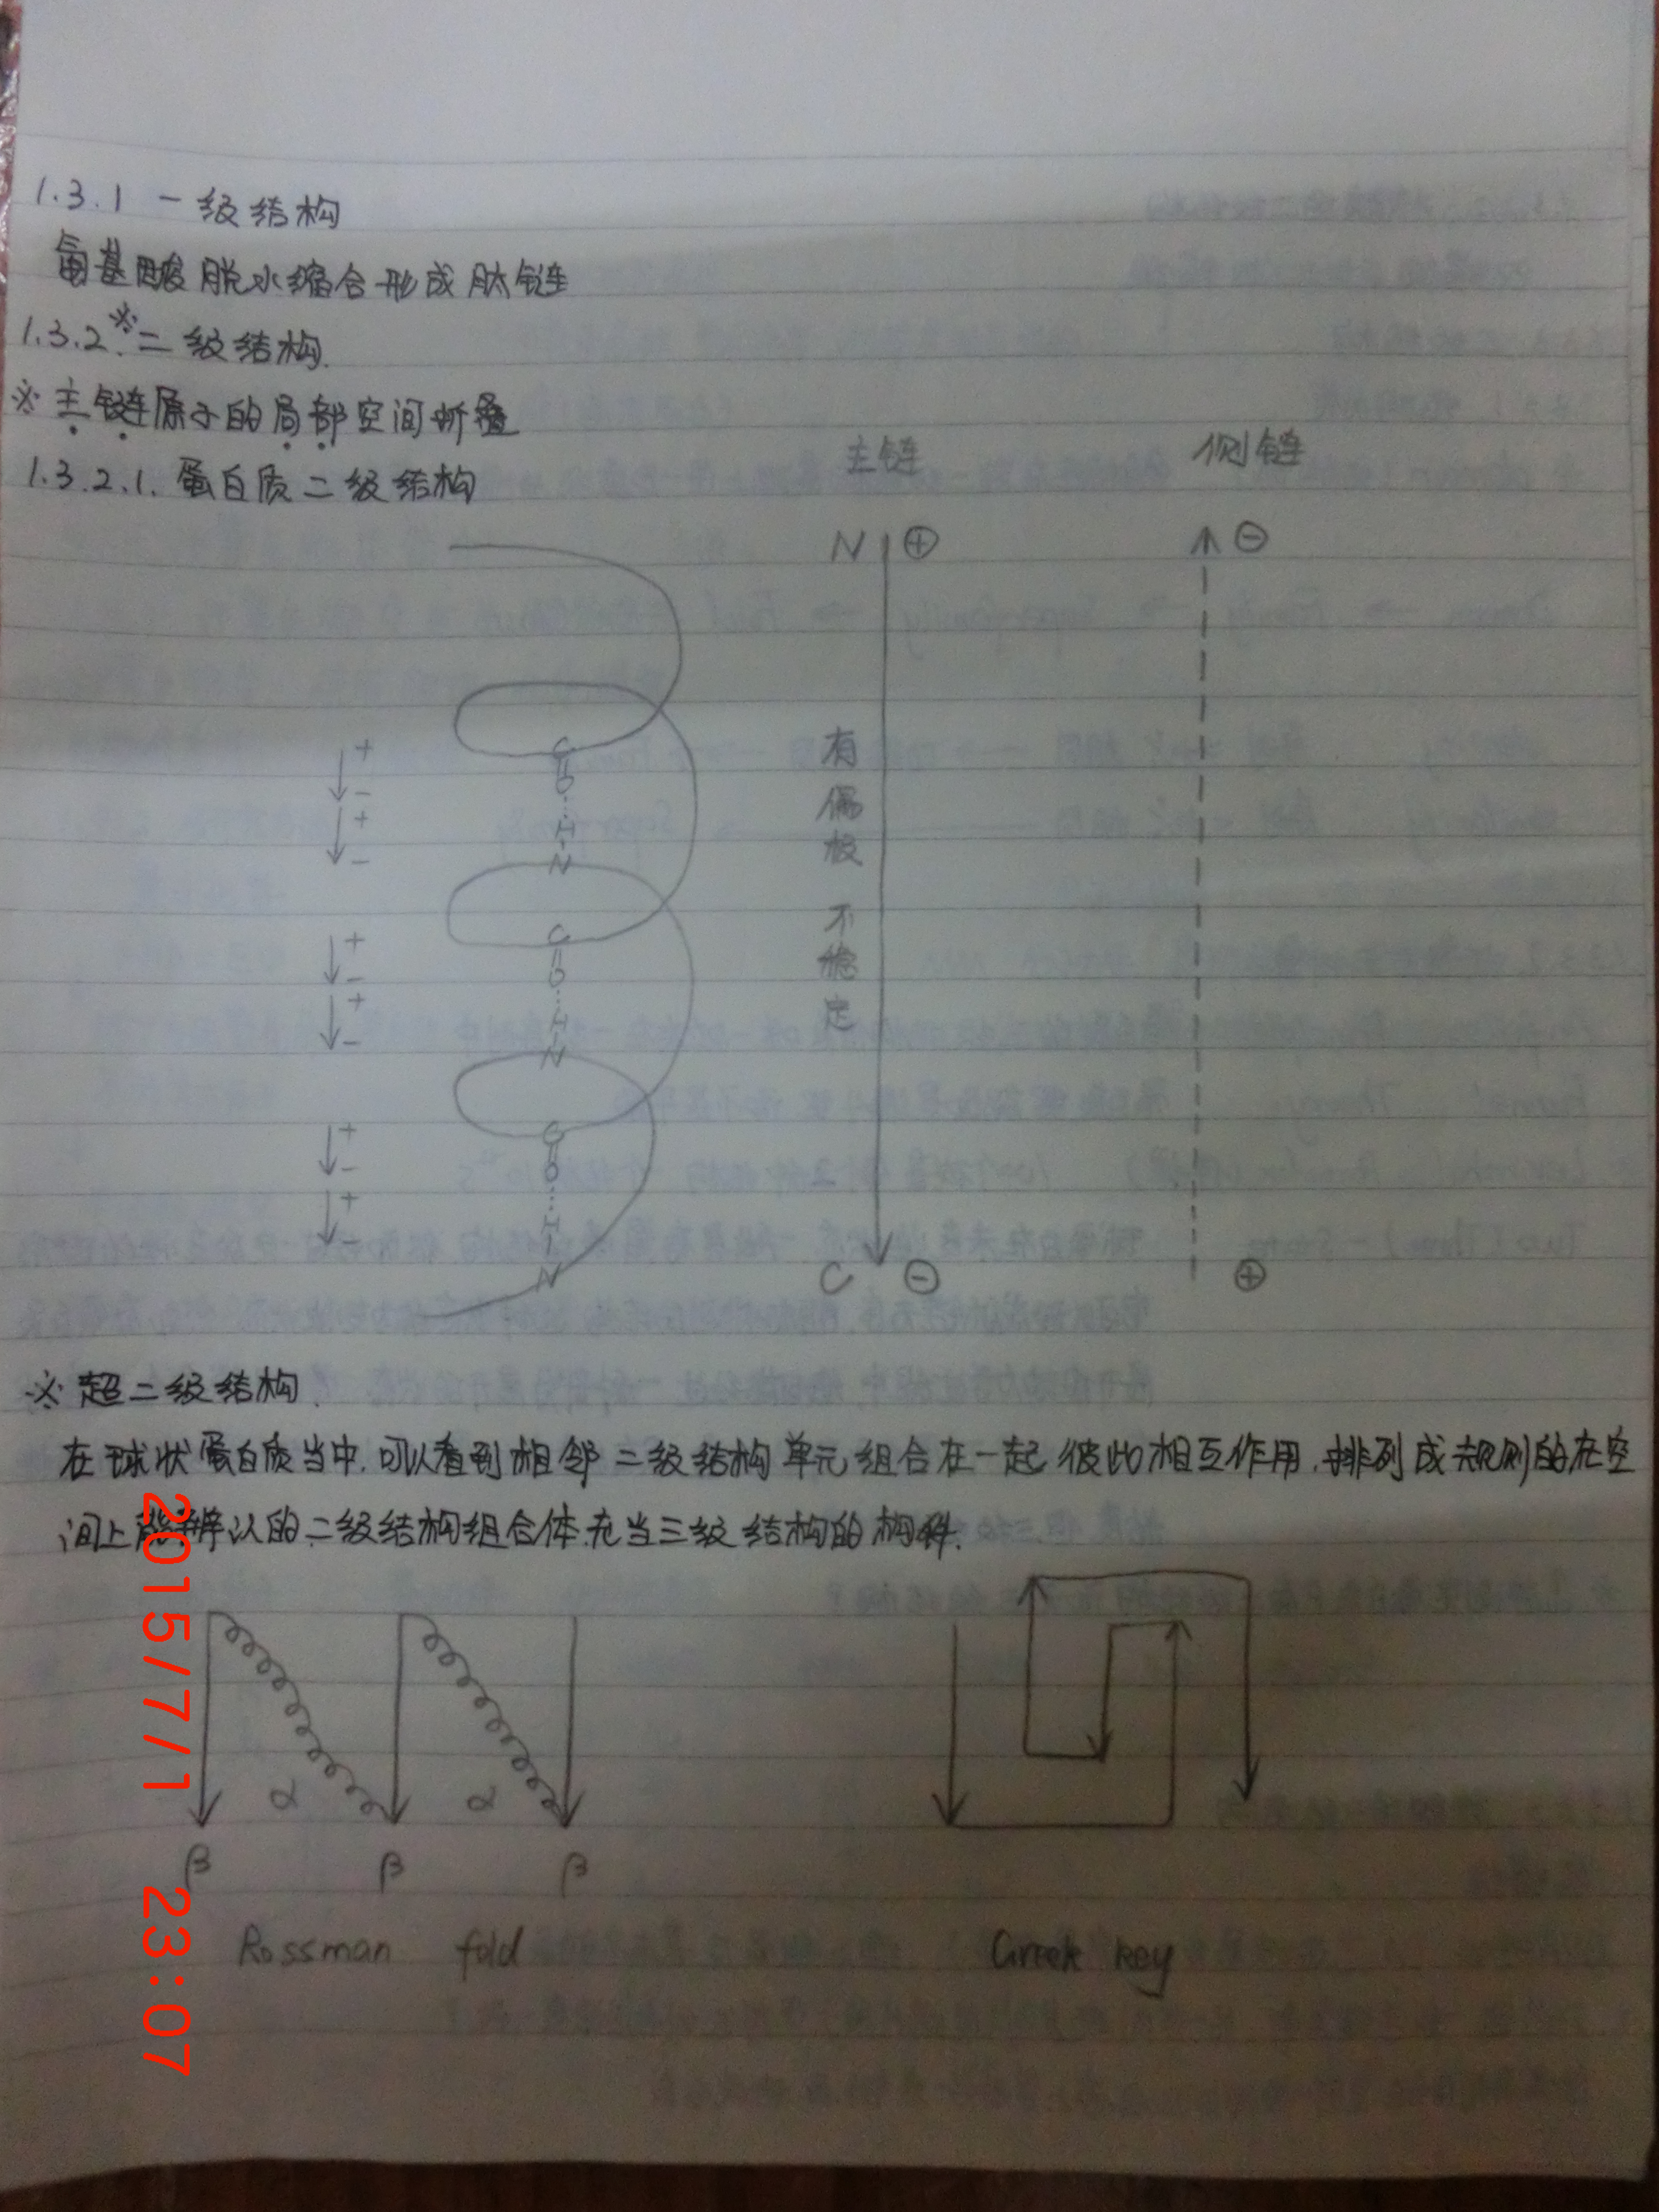 1.3.1 一级结构
氨基酸脱水缩合形成肽链
1.3.2.※二级结构.
※ 主链原子的局部空间折叠
主链 侧链
1.3.2.1. 蛋白质二级结构
N ⊕ ⊖
C
O
H
N
C
O
H
N
C
O
H
N
+
-
+
-
+
-
+
-
+
-
+
-
有偶极 不稳定
C ⊖ ⊕
※ 超二级结构.
在球状蛋白质当中,可以看到相邻二级结构单元组合在一起 彼此相互作用,排列成规则的在空
间上能辨认的二级结构组合体充当三级结构的构件.
α α
β β β
Rossman fold Greek key
2015/7/1 23:07